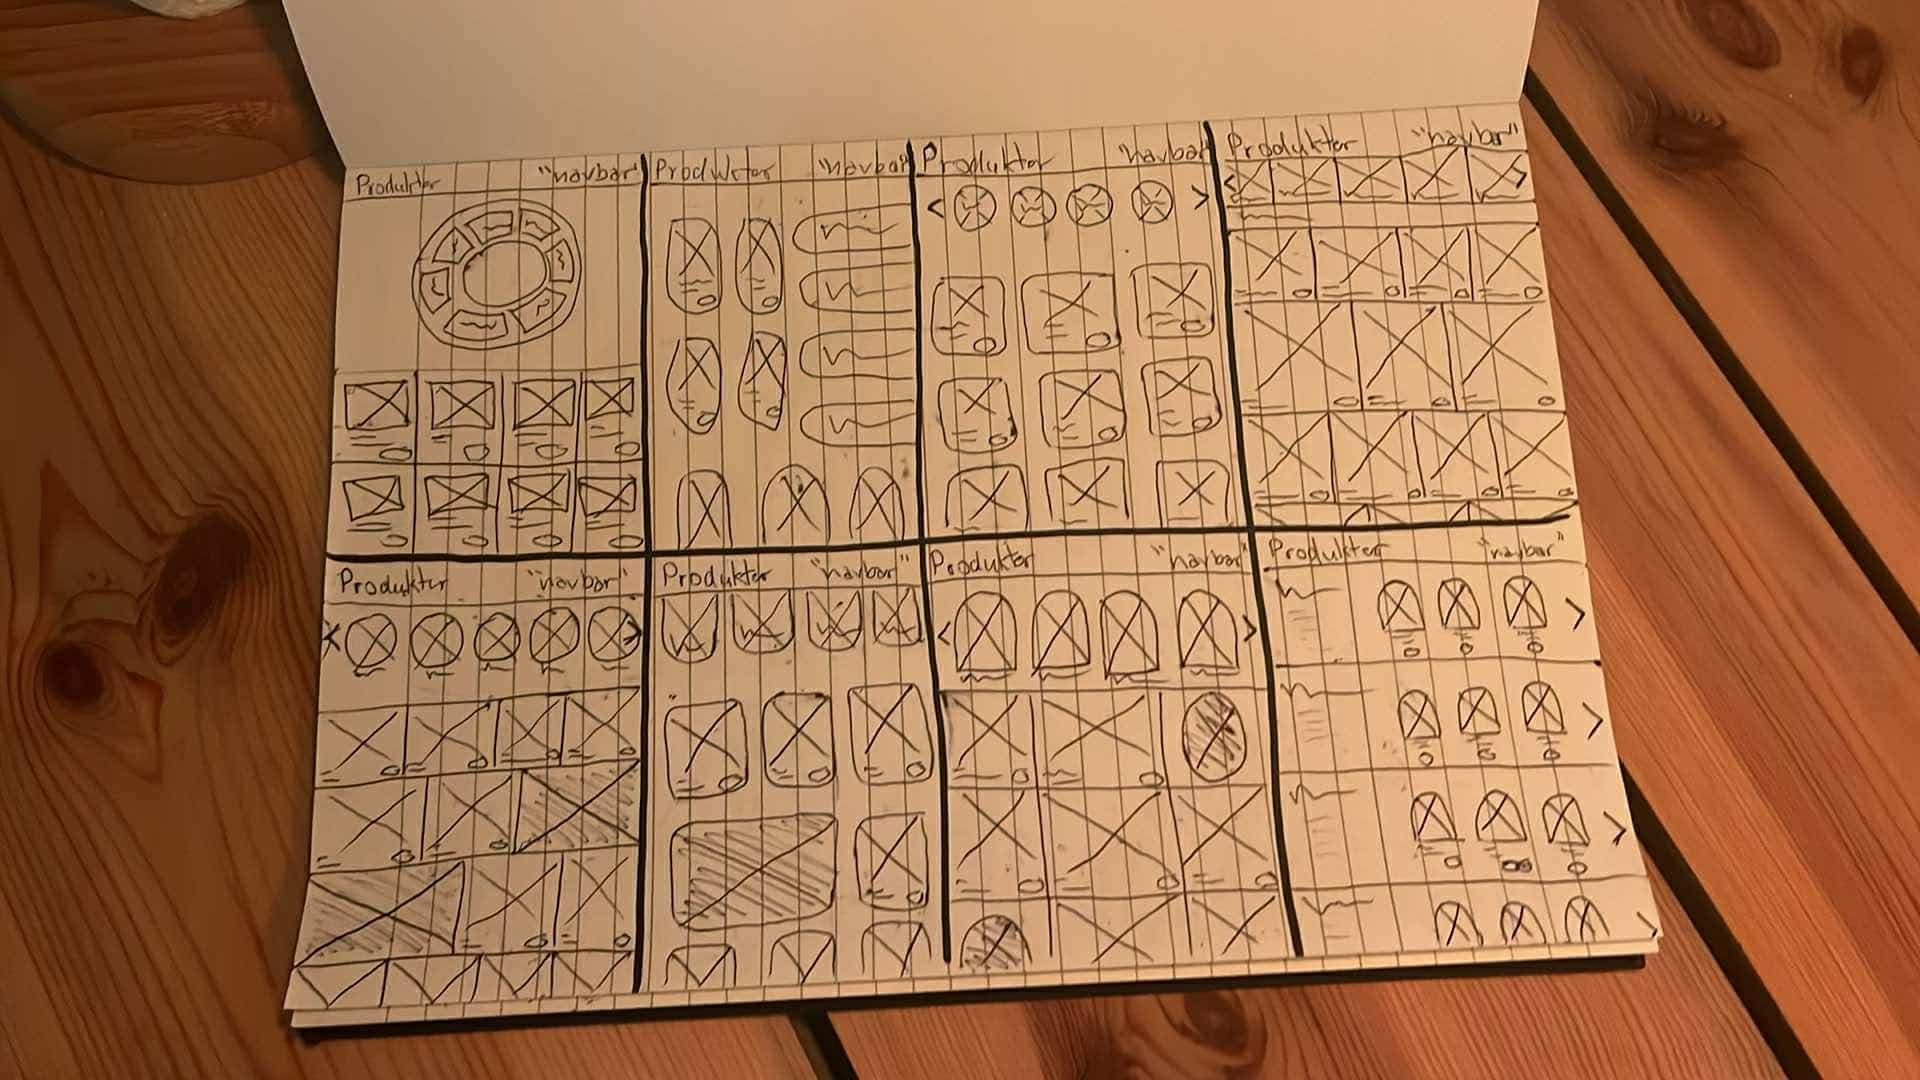 Produkter "navbar"
Produkter "navbar"
Produkter "navbar
Produkter "navbar"
Produkter "navbar"
Produkter "navbar"
Produkter "navbar"
Produkter "navbar"